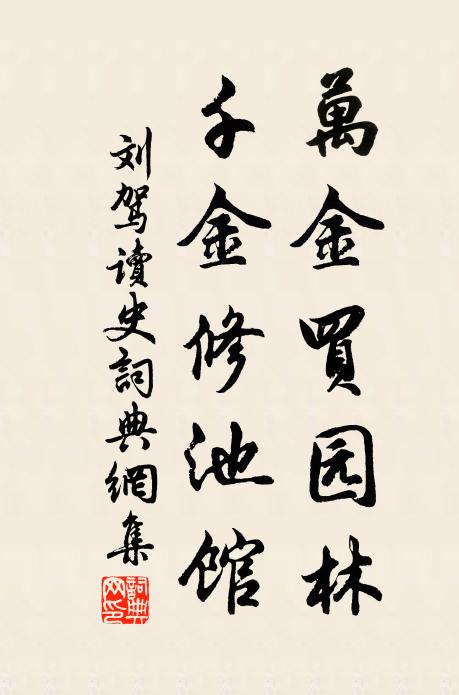 萬金買园林
千金修池館
刘驾讀史詞典網集
詞典网印